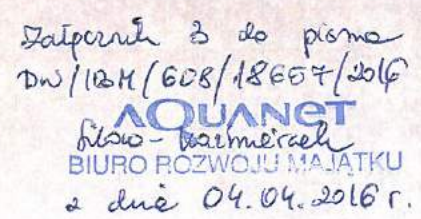 Załącznik 3 do pisma
DW/IBM/608/18657/2016
AQUANET
BIURO ROZWOJU MAJĄTKU
z dnia 04.04.2016 r.